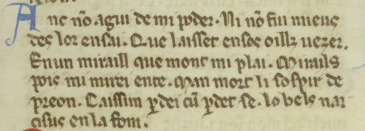 Anc nõ agui de mi poder. Ni nõ fui mieus
des lor ensai. Que laisset ensos oillz vezer.
En un miraill que mout mi plai. Mirails
pois mi mirei ente. Man mort li sospir de
preon. Caissim ꝑdei cũ ꝑdet se. lo bels nar
cisus en la fon.